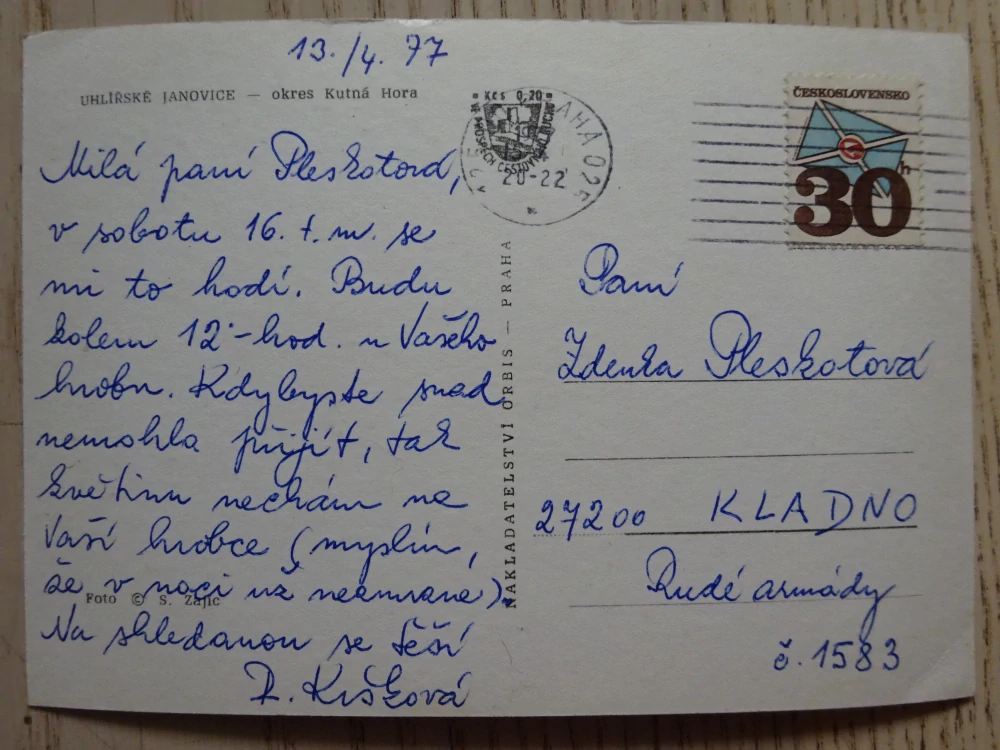 13./4. 77
UHLÍŘSKÉ JANOVICE — okres Kutná Hora
Milá paní Pleskotová,
v sobotu 16. t. m. se
mi to hodí. Budu
kolem 12-hod. u Vašeho
hrobu. Kdybyste snad
nemohla přijít, tak
květinu nechám na
Vaší hrobce (myslím,
že v noci už nezmrzne).
Foto © S. Zajíc
Na shledanou se těší
Kršková
NAKLADATELSTVÍ ORBIS — PRAHA
Kčs 0,20
VE PROSPĚCH CESTOVNÍHO RUCHU
AHA 025
20-22
ČESKOSLOVENSKO
30 h
Paní
Zdenka Pleskotová
27200 KLADNO
Rudé armády
č. 1583